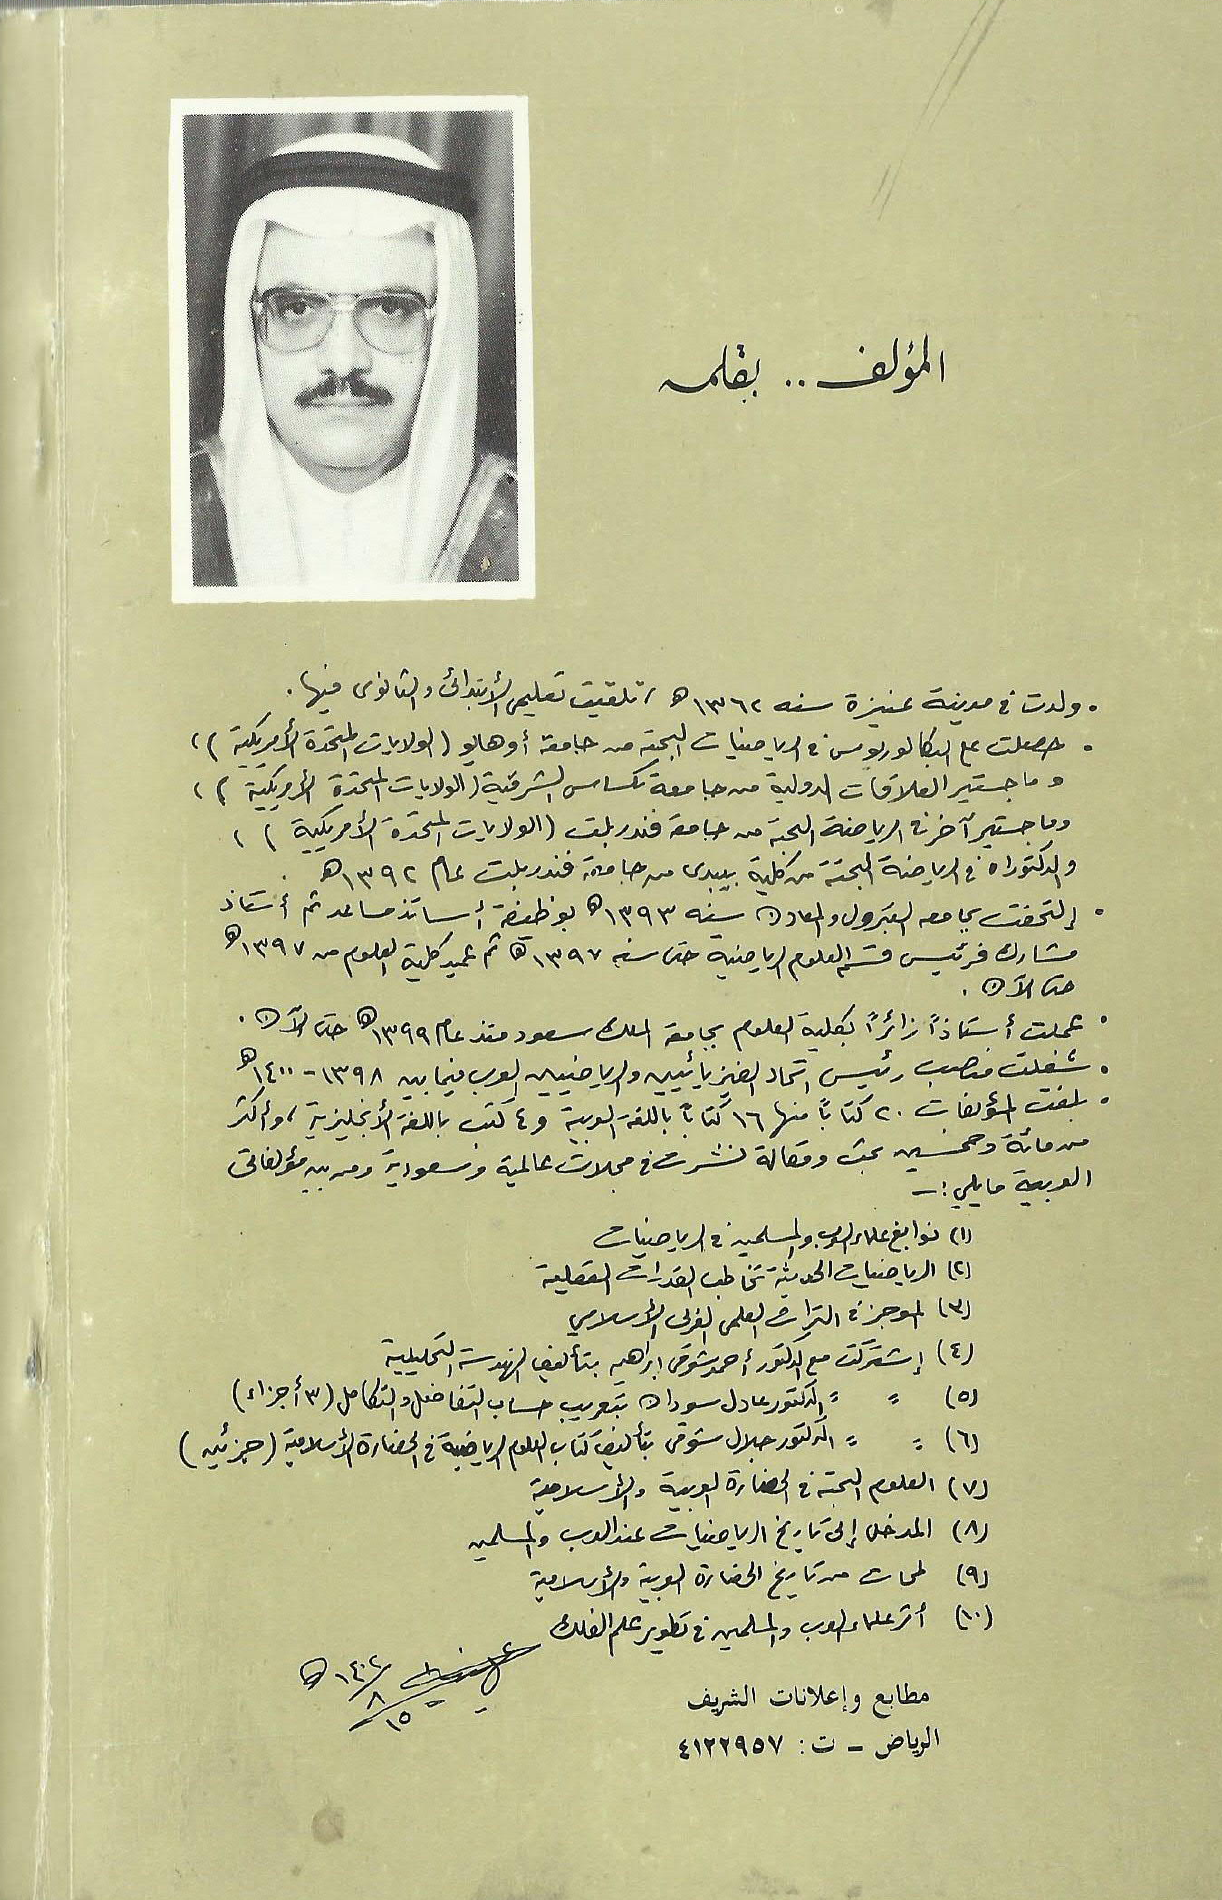 المؤلف .. بقلمه
• ولدت في مدينة عنيزة سنه ١٣٦٢ه ، تلقيت تعليمي الأبتدائي والثانوي فيها .
• حصلت على البكالوريوس في الرياضيات البحته من جامعة أوهايو ( الولايات المتحدة الأمريكية ) ،
و ماجستير العلاقات الدولية من جامعة تكساس الشرقية ( الولايات المتحدة الأمريكية ) ،
وماجستير آخر في الرياضة البحتة من جامعة فندربلت ( الولايات المتحدة الأمريكية ) ،
والدكتوراه في الرياضة البحتة من كلية بيبدى من جامعة فندربلت عام ١٣٩٢ه .
• إلتحقت بجامعه البترول والمعادن سنه ١٣٩٣ه بوظيفة أستاذ مساعد ثم أستاذ
مشارك فرئيس قسم العلوم الرياضية حتى سنه ١٣٩٧ه ثم عميد كلية العلوم من ١٣٩٧ه
حتى الآن .
• عملت أستاذاً زائراً بكلية العلوم بجامعة الملك سعود منذ عام ١٣٩٩ه حتى الآن .
• شغلت منصب رئيس اتحاد الفيزيائيين والرياضيين العرب فيما بين ١٣٩٨ - ١٤٠٠ه
• بلغت المؤلفات ٢٠ كتاباً منها ١٦ كتاباً باللغة العربية و ٤ كتب باللغة الأنجليزية ، وأكثر
من مائة وخمسين بحث ومقالة نشرت في مجلات عالمية وسعودية ومن بين مؤلفاتي
العربية مايلي : -
(١) نوابغ علماء العرب والمسلمين في الرياضيات
(٢) الرياضيات الحديثة تخاطب القدرات العقلية
(٣) الموجز في التراث العلمي العربي الأسلامي
(٤) إشتركت مع الدكتور أحمد شوقى ابراهيم بتأليف الهندسة التحليلية
(٥) " " الدكتور عادل سودان بتعريب حساب التفاضل والتكامل ( ٣ أجزاء )
(٦) " " الدكتور جلال شوقى بتأليف كتاب العلوم الرياضية في الحضارة الأسلامية ( جزئين )
(٧) العلوم البحتة في الحضارة العربية والأسلامية
(٨) المدخل إلى تاريخ الرياضيات عند العرب والمسلمين
(٩) لمحات من تاريخ الحضارة العربية والأسلامية
(١٠) أثر علماء العرب والمسلمين في تطوير علم الفلك
١٤٠٢ه / ٨ / ١٥
مطابع وإعلانات الشريف
الرياض - ت : ٤١٢٢٩٥٧